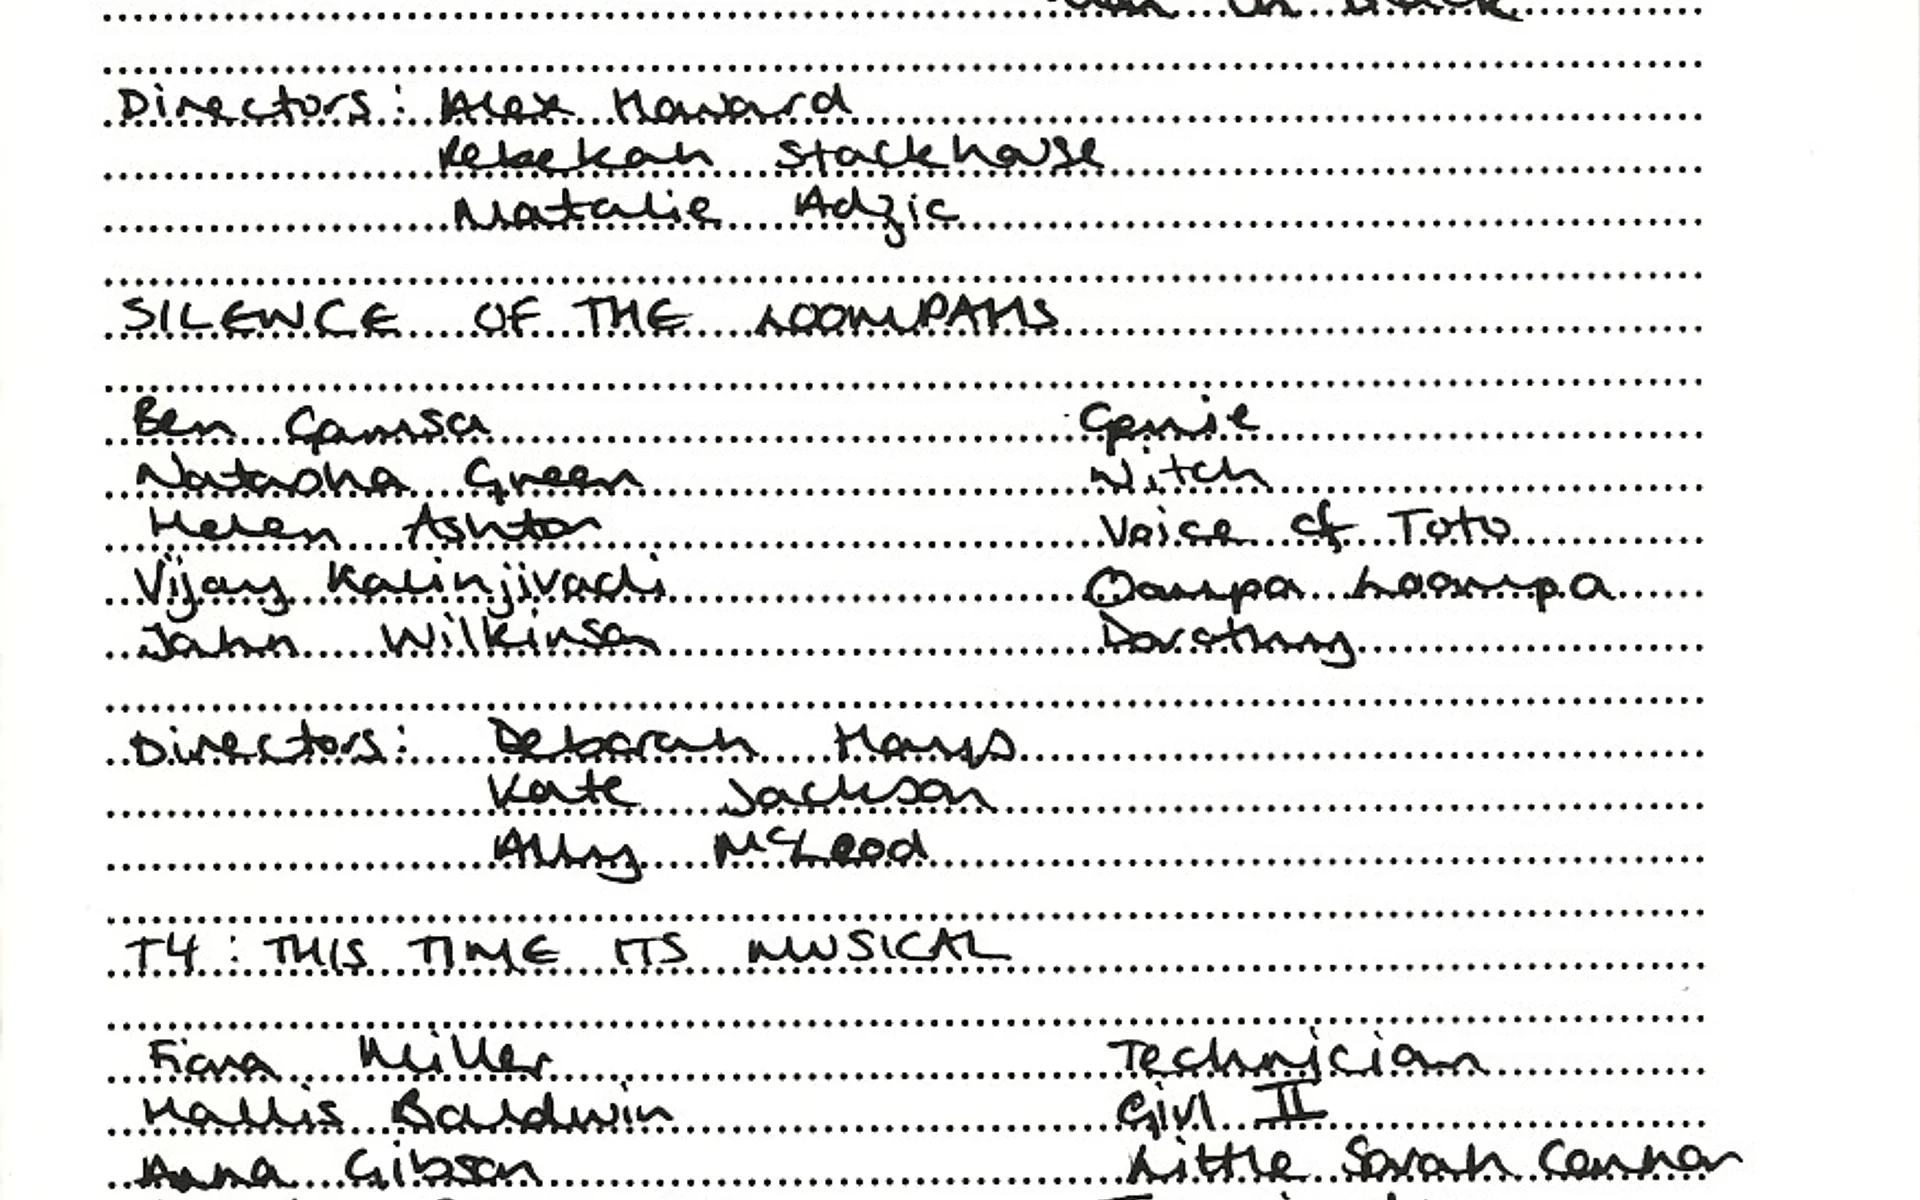 in Black
Directors: Alex Howard
Rebekah Stackhouse
Natalie Adzic
SILENCE OF THE LOOMPAHS
Ben Gamsa Genie
Natasha Green Witch
Helen Ashton Voice of Toto
Vijay Kalinjivadi Oompa Loompa
John Wilkinson Dorothy
Directors: Deborah Hays
Kate Jackson
Ally McLeod
T4: THIS TIME ITS MUSICAL
Fiona Miller Technician
Hallis Baldwin Girl II
Anna Gibson Little Sarah Connor